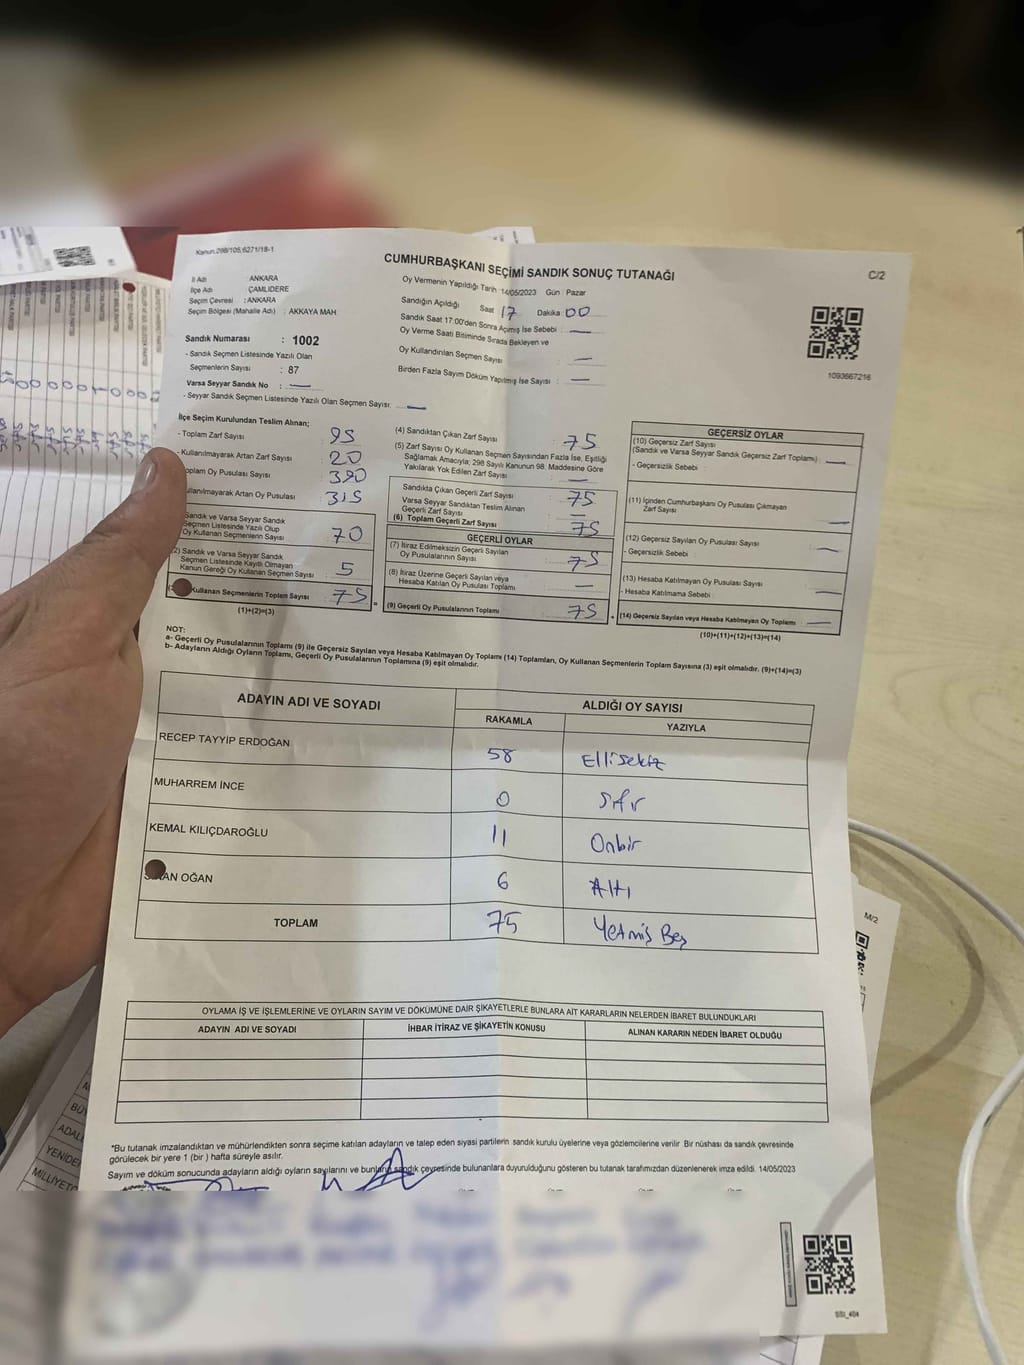 Kanun.298/105;6271/18-1
CUMHURBAŞKANI SEÇİMİ SANDIK SONUÇ TUTANAĞI
C/2
İl Adı : ANKARA
İlçe Adı : ÇAMLIDERE
Seçim Çevresi : ANKARA
Seçim Bölgesi (Mahalle Adı) : AKKAYA MAH.
Sandık Numarası : 1002
- Sandık Seçmen Listesinde Yazılı Olan
Seçmenlerin Sayısı : 87
Varsa Seyyar Sandık No : —
- Seyyar Sandık Seçmen Listesinde Yazılı Olan Seçmen Sayısı: —
Oy Vermenin Yapıldığı Tarih :14/05/2023 Gün : Pazar
Sandığın Açıldığı Saat 17 Dakika 00
Sandık Saat 17:00'den Sonra Açımış İse Sebebi : —
Oy Verme Saati Bitiminde Sırada Bekleyen ve
Oy Kullandırılan Seçmen Sayısı : —
Birden Fazla Sayım Döküm Yapılmış İse Sayısı : —
1093667216
İlçe Seçim Kurulundan Teslim Alınan;
- Toplam Zarf Sayısı : 95
- Kullanılmayarak Artan Zarf Sayısı : 20
Toplam Oy Pusulası Sayısı : 390
Kullanılmayarak Artan Oy Pusulası : 315
Sandık ve Varsa Seyyar Sandık
Seçmen Listesinde Yazılı Olup
Oy Kullanan Seçmenlerin Sayısı : 70
(2) Sandık ve Varsa Seyyar Sandık
Seçmen Listesinde Kayıtlı Olmayan
Kanun Gereği Oy Kullanan Seçmen Sayısı : 5
Kullanan Seçmenlerin Toplam Sayısı : 75
(1)+(2)=(3)
(4) Sandıktan Çıkan Zarf Sayısı : 75
(5) Zarf Sayısı Oy Kullanan Seçmen Sayısından Fazla İse, Eşitliği
Sağlamak Amacıyla; 298 Sayılı Kanunun 98. Maddesine Göre
Yakılarak Yok Edilen Zarf Sayısı : —
Sandıkta Çıkan Geçerli Zarf Sayısı : 75
Varsa Seyyar Sandıktan Teslim Alınan
Geçerli Zarf Sayısı : —
(6) Toplam Geçerli Zarf Sayısı : 75
GEÇERLİ OYLAR
(7) İtiraz Edilmeksizin Geçerli Sayılan
Oy Pusulalarının Sayısı : 75
(8) İtiraz Üzerine Geçerli Sayılan veya
Hesaba Katılan Oy Pusulası Toplamı : —
(9) Geçerli Oy Pusulalarının Toplamı : 75
GEÇERSİZ OYLAR
(10) Geçersiz Zarf Sayısı
(Sandık ve Varsa Seyyar Sandık Geçersiz Zarf Toplamı) : —
- Geçersizlik Sebebi :
(11) İçinden Cumhurbaşkanı Oy Pusulası Çıkmayan
Zarf Sayısı : —
(12) Geçersiz Sayılan Oy Pusulası Sayısı : —
- Geçersizlik Sebebi :
(13) Hesaba Katılmayan Oy Pusulası Sayısı
- Hesaba Katılmama Sebebi : —
(14) Geçersiz Sayılan veya Hesaba Katılmayan Oy Toplamı : —
(10)+(11)+(12)+(13)=(14)
NOT:
a- Geçerli Oy Pusulalarının Toplamı (9) ile Geçersiz Sayılan veya Hesaba Katılmayan Oy Toplamı (14) Toplamları, Oy Kullanan Seçmenlerin Toplam Sayısına (3) eşit olmalıdır. (9)+(14)=(3)
b- Adayların Aldığı Oyların Toplamı, Geçerli Oy Pusulalarının Toplamına (9) eşit olmalıdır.
ADAYIN ADI VE SOYADI
ALDIĞI OY SAYISI
RAKAMLA
YAZIYLA
RECEP TAYYİP ERDOĞAN 58 Ellisekiz
MUHARREM İNCE 0 Sıfır
KEMAL KILIÇDAROĞLU 11 Onbir
OĞAN 6 Altı
TOPLAM 75 Yetmiş Beş
OYLAMA İŞ VE İŞLEMLERİNE VE OYLARIN SAYIM VE DÖKÜMÜNE DAİR ŞİKAYETLERLE BUNLARA AİT KARARLARIN NELERDEN İBARET BULUNDUKLARI
ADAYIN ADI VE SOYADI
İHBAR İTİRAZ VE ŞİKAYETİN KONUSU
ALINAN KARARIN NEDEN İBARET OLDUĞU
*Bu tutanak imzalandıktan ve mühürlendikten sonra seçime katılan adayların ve talep eden siyasi partilerin sandık kurulu üyelerine veya gözlemcilerine verilir .Bir nüshası da sandık çevresinde
görülecek bir yere 1 (bir ) hafta süreyle asılır.
Sayım ve döküm sonucunda adayların aldığı oyların sayılarını ve bunların sandık çevresinde bulunanlara duyurulduğunu gösteren bu tutanak tarafımızdan düzenlenerek imza edildi. 14/05/2023
M/2